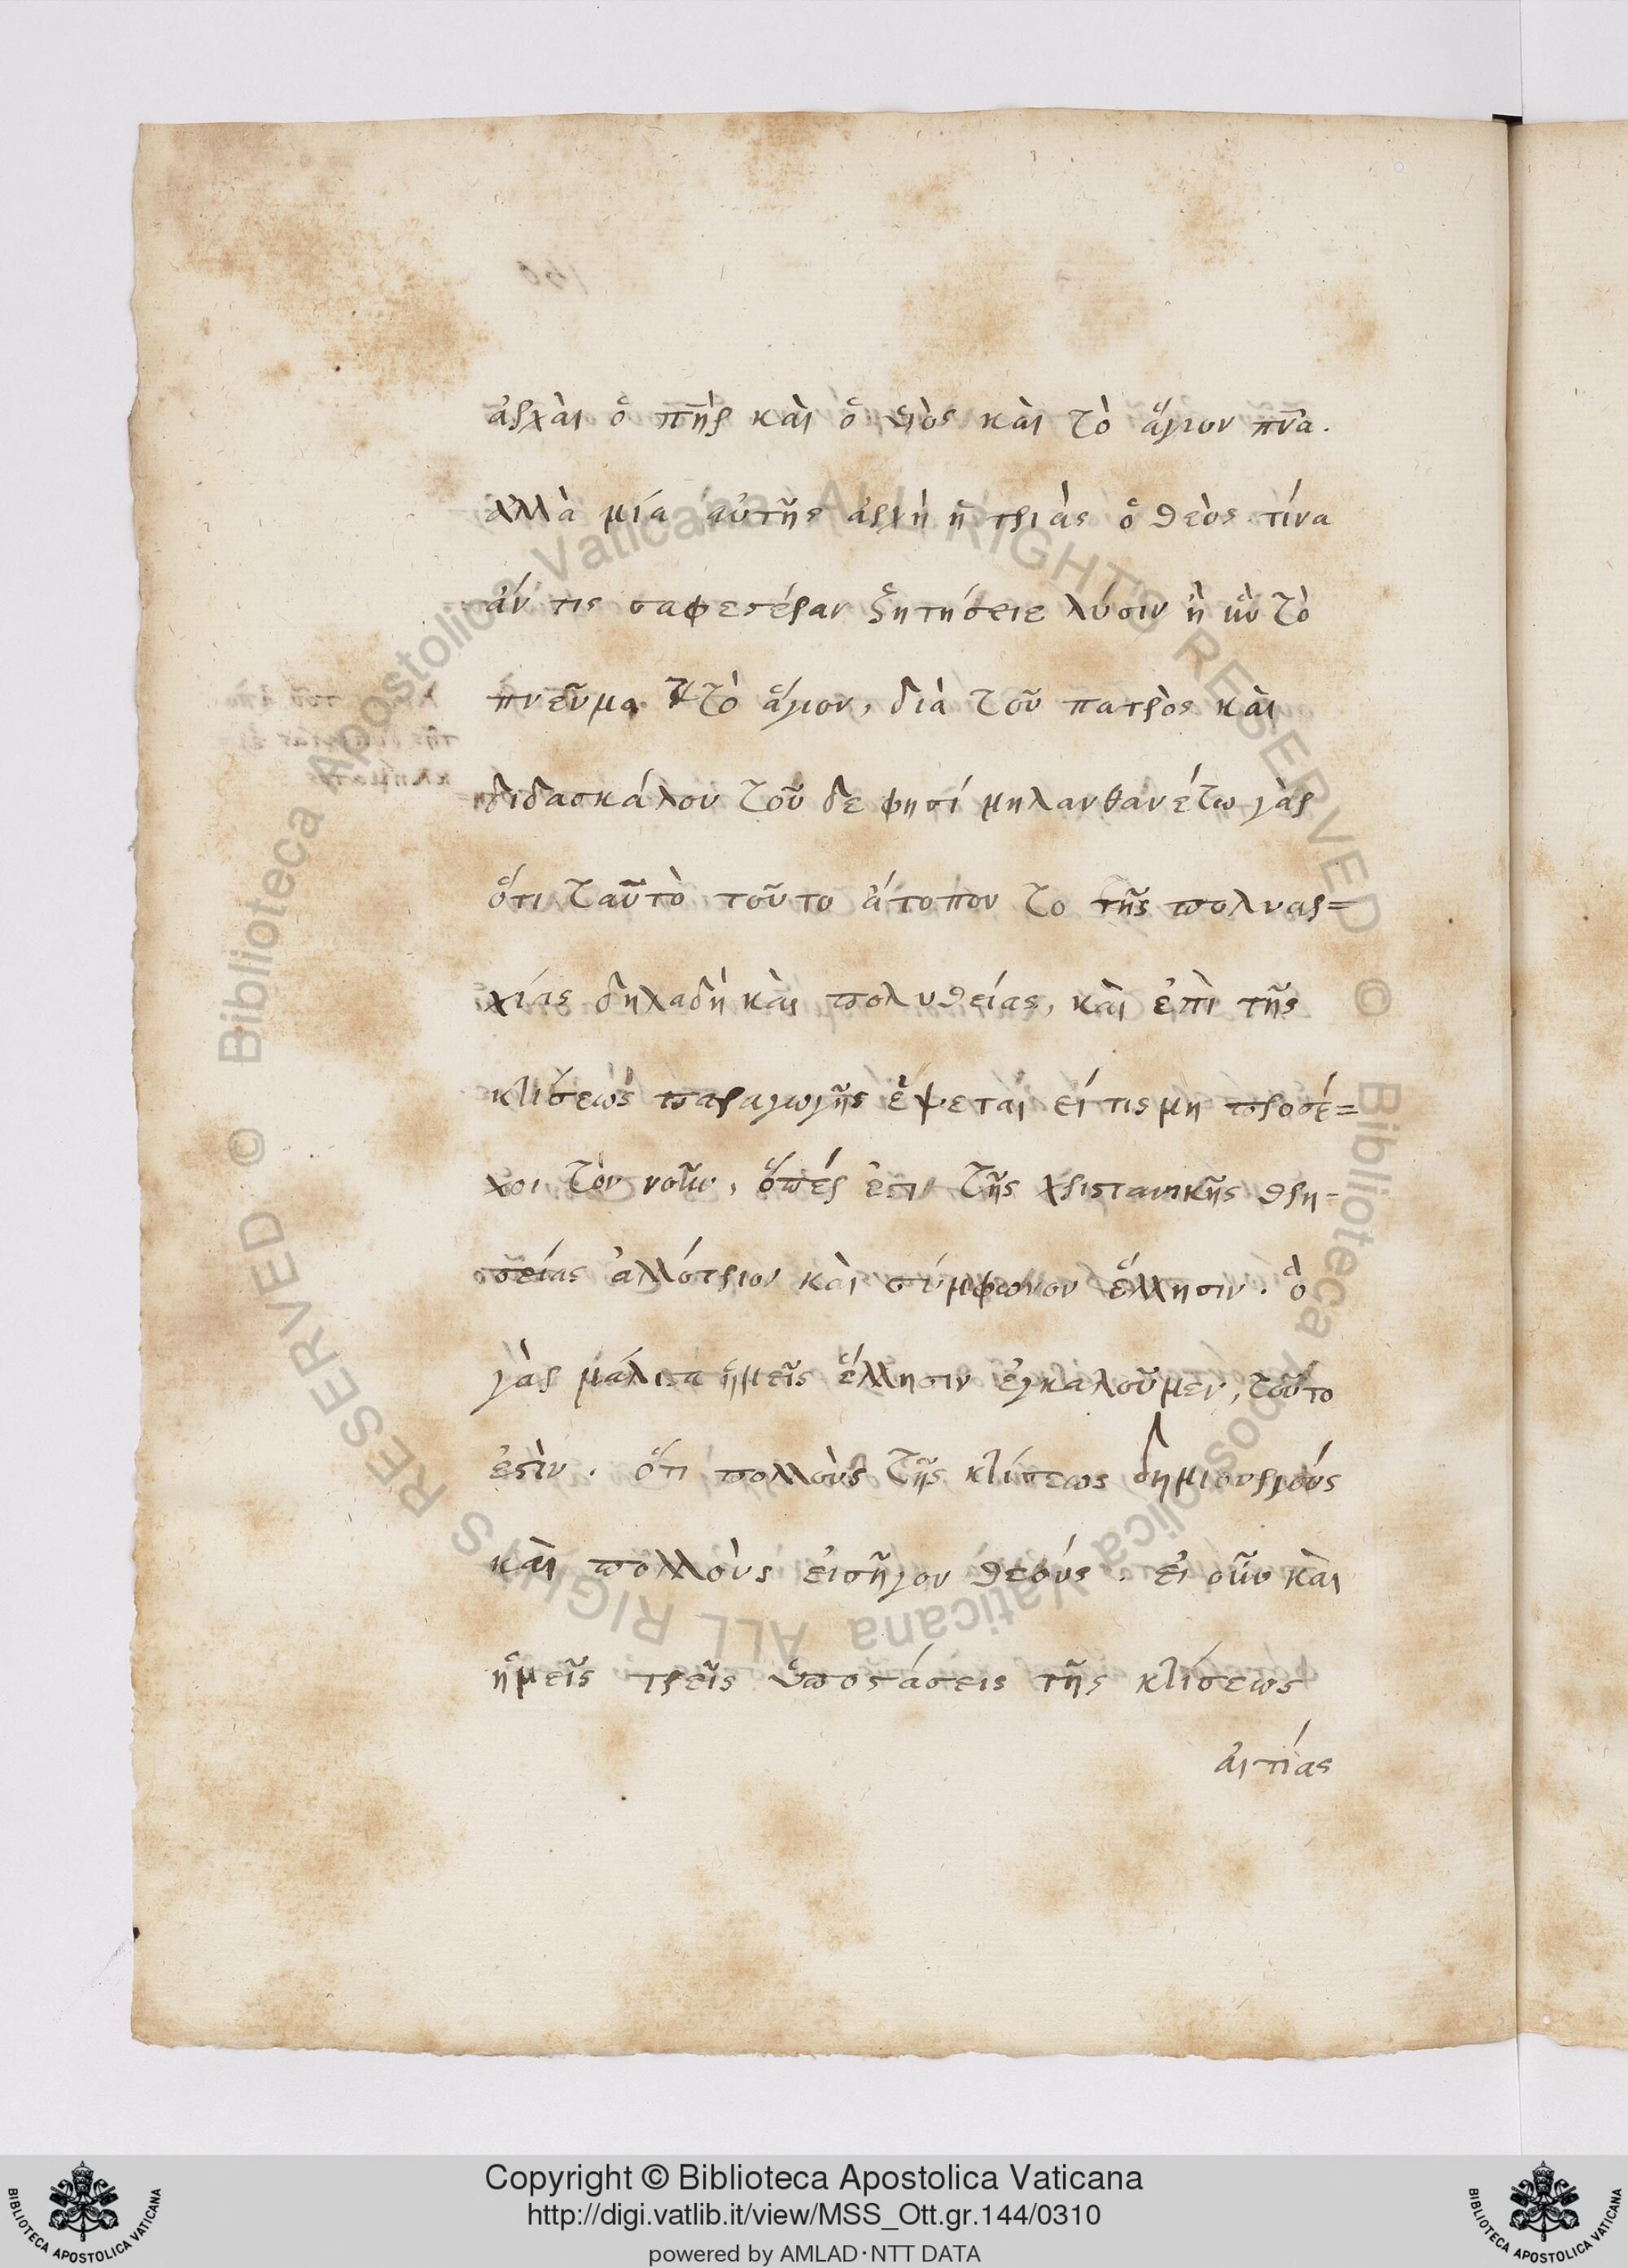 ἀρχὰι ὁ πη̅ρ κὰι ὁ υἱὸς κὰι τὸ ἅγιον πν̅α.
ἀλλὰ μία αὐτῆς ἀρχὴ ἡ τριὰς ὁ θεὸς τίνα
ἄν τις σαφεστέραν ζητήσειε λύσιν ἢ ἣν τὸ
πνεῦμα τὸ ἅγιον, διὰ τοῦ πατρὸς κὰι
διδασκάλου τοῦ δε φησί μηλανθανέτω γὰρ
ὅτι ταὖτὸ τοῦτο ἄτοπον το τῆς πολυαρ=
χίας δηλαδὴ κὰι πολυθείας, κὰι ἐπὶ τῆς
κλίσεως παραγωγῆς ἕψεται εἴτις μη προσέ=
χοι τὸν νοῦν, ὅπέρ ἐστι τῆς χριστανικῆς θρη=
σείας ἀλλότριον κὰι σύμφωνον ἕλλησιν. ὃ
γὰρ μάλιστα ἡμεῖς ἕλλησιν ἐγκαλοῦμεν, τοῦτο
ἐστὶν. ὅτι πολλοὺς τῆς κλίσεως δημιουργούς
κὰι πολλοὺς εἰσῆγον θεούς. εἰ οὖν κὰι
ἡμεῖς τρεῖς ὑποστάσεις τῆς κλίσεως
ἀιτίας
© Biblioteca Apostolica Vaticana ALL RIGHTS RESERVED © Biblioteca Apostolica Vaticana ALL RIGHTS RESERVED
Copyright © Biblioteca Apostolica Vaticana
http://digi.vatlib.it/view/MSS_Ott.gr.144/0310
powered by AMLAD·NTT DATA
BIBLIOTECA APOSTOLICA VATICANA
BIBLIOTECA APOSTOLICA VATICANA